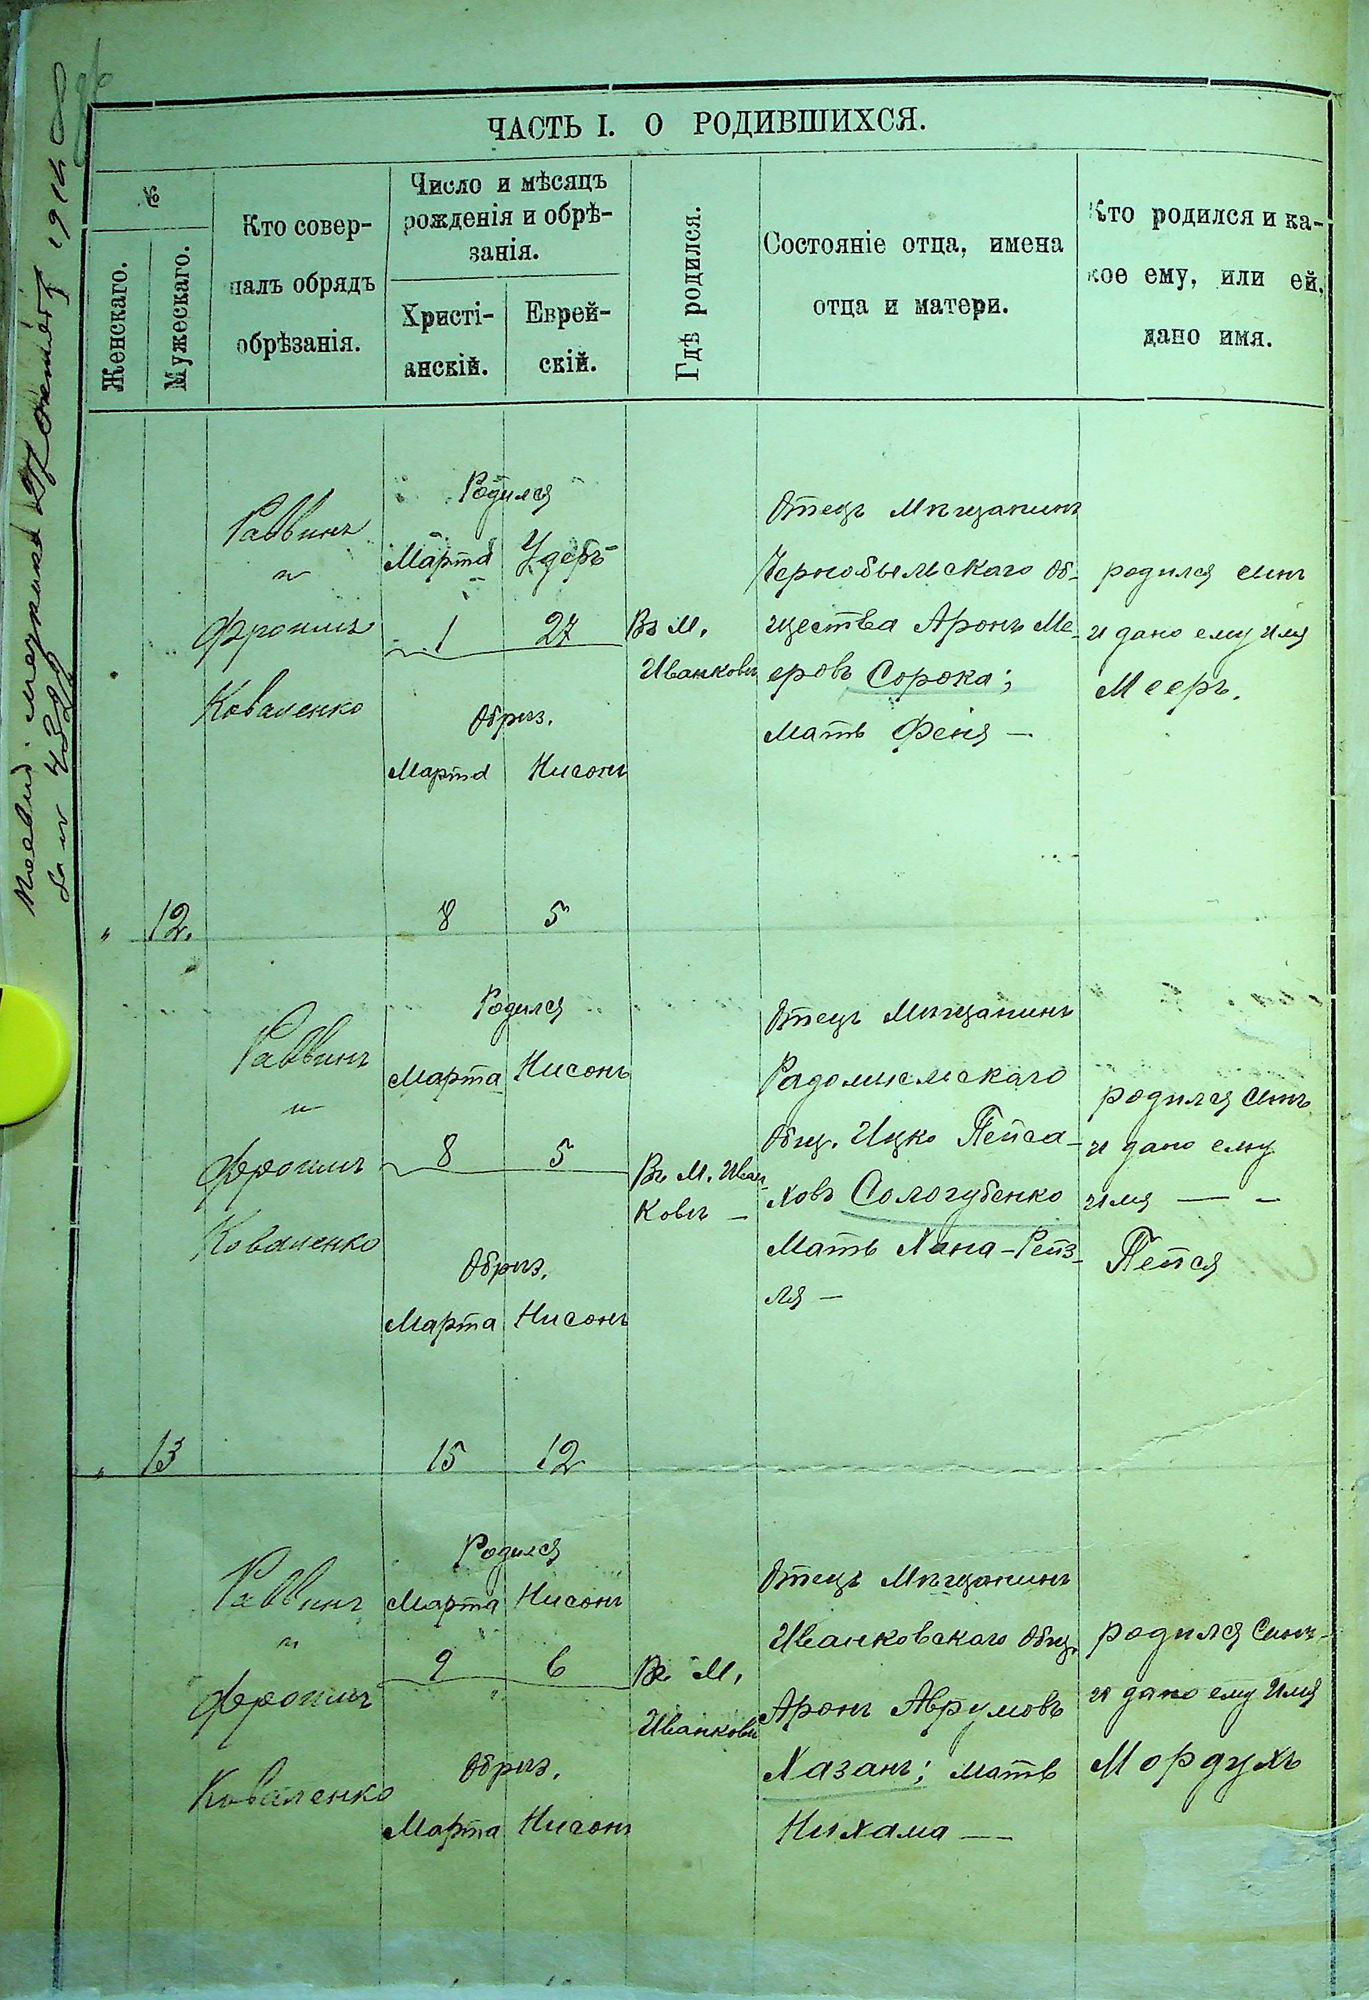 ЧАСТЬ I. О РОДИВШИХСЯ.
№
Женскаго.
Мужескаго.
Кто совер-
шалъ обрядъ
обрѣзанія.
Число и мѣсяцъ
рожденія и обрѣ-
занія.
Христі-
анскій.
Еврей-
скій.
Гдѣ родился.
Состояніе отца, имена
отца и матери.
Кто родился и ка-
кое ему, или ей,
дано имя.
Раввинъ
"
Фроимъ
Коваленко
Родился
Марта Удеръ
1 27
Обрѣз.
Марта Нисонъ
8 5
Въ М.
Иванковѣ
Отецъ Мѣщанинъ
Чернобыльскаго об-
щества Аронъ Ме-
еровъ Сорока;
Мать Феня —
родился сынъ
и дано ему имя
Мееръ.
" 12.
Раввинъ
"
Фроимъ
Коваленко
Родился
Марта Нисонъ
8 5
Обрѣз.
Марта Нисонъ
15 12
Въ М. Иван-
ковѣ —
Отецъ Мѣщанинъ
Радомысльскаго
Общ. Ицко Пейса-
ховъ Сологубенко
Мать Хана-Рейз-
ля —
родился сынъ
и дано ему
имя — -
Пейся
" 13
Раввинъ
"
Фроимъ
Коваленко
Родился
Марта Нисонъ
9 6
Обрѣз.
Марта Нисонъ
Въ М.
Иванковѣ
Отецъ Мѣщанинъ
Иванковскаго Общ.
Аронъ Аврумовъ
Хазанъ; мать
Нихама —
родился Сынъ
и дано ему Имя
Мордухъ
1914